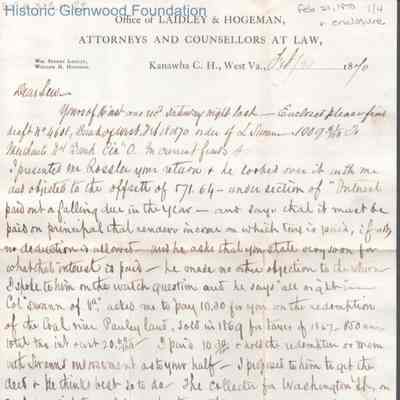 Historic Glenwood Foundation
Feb 21, 1870 1/4
+ enclosure
Office of LAIDLEY & HOGEMAN,
ATTORNEYS AND COUNSELLORS AT LAW,
Wm. Sydney Laidley,
William H. Hogeman.
Kanawha C. H., West Va., Feb 1870
Dear Lew
Yours of 16 inst was recd Saturday night last — Enclosed please find
draft No 4601, Bank of West, Feb 1870 order of L Summers 1009 To
Merchants Bank Cin O. In current funds
I presented Mr Rossler your return & he looked over it with me
and objected to the offsett of 571.64 — under section of "Interest
paid out or falling due in the year — and says that it must be
paid on principal that renders income on which tax is paid, if not
no deduction is allowed — and he asks that you state or say soon for
what that interest is paid — he made no other objection to the return
I spoke to him on the watch question and he says all right —
Col Swann of Va. asked me to pay 10.30 for you on the redemption
of the Coal river Pauley land, sold in 1869 for taxes of 1867, 850 acres
total tax int & cost 20. I paid 10.30 & hold the redemption or mem
with Swanns endorsement as to your half — I proposed to him to get the
deed & he thinks best so to do — The Collector for Washington Dp, on